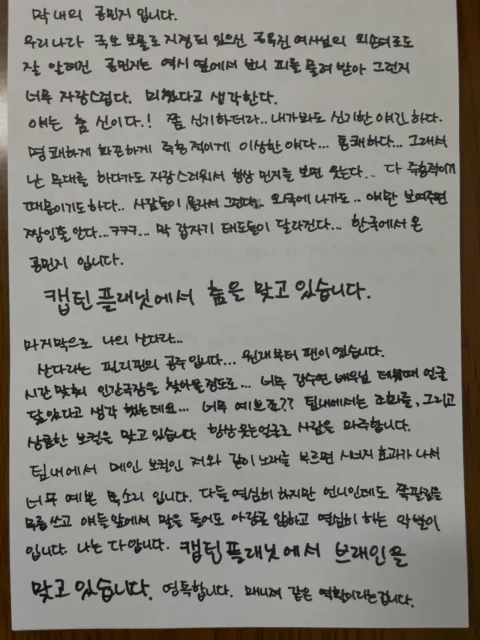 막내의 공민지 입니다.
우리나라 국보 보물로 지정되 있으신 공옥진 여사님의 외손녀로도
잘 알려진 공민지는 역시 옆에서 보니 피를 물려 받아 그런지
너무 자랑스럽다. 미쳤다고 생각한다.
얘는 춤 신이다.! 쫌 신기하더라.. 내가봐도 신기한 얘긴 하다.
명쾌하게 화끈하게 즉흥적이게 이상한 얘다... 통쾌하다... 그래서
난 무대를 하다가도 자랑스러워서 항상 민지를 보면 웃는다... 다 즉흥적이기
때문이기도하다.. 사람들이 놀라서 그런다... 외국에 나가도.. 얘만 보여주면
짱인줄 안다...ㅋㅋㅋ... 막 갑자기 태도들이 달라진다... 한국에서 온
공민지 입니다.
캡틴플래닛에서 춤을 맞고 있습니다.
마지막으로 나의 산다라...
산다라는 필리핀의 공주입니다... 원래부터 팬이였습니다.
시간 맞춰 인간극장을 찾아볼정도로... 너무 강수연 배우님 데뷔때 얼굴
닮았다고 생각 했는데요... 너무 예쁘죠?? 팀내에서는 조화를, 그리고
상큼한 보컬을 맞고있습니다 항상웃는얼굴로 사람을 마주합니다.
팀내에서 메인 보컬인 저와 같이 노래를 부르면 시너지 효과가 나서
너무 예쁜 목소리 입니다. 다들 열심히 하지만 언니인데도 쪽팔림을
무릅쓰고 얘들앞에서 말을 들어도 아랑곳 않하고 열심히 하는 악발이
입니다. 나는 다압니다. 캡틴플래닛에서 브레인을
맞고 있습니다. 영특합니다. 매니져 같은 역할이라는겁니다.